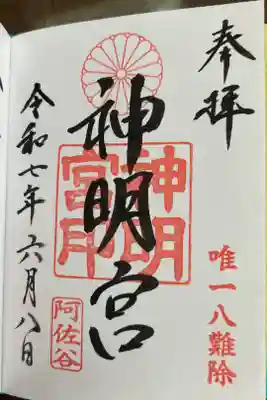 奉拝
唯一八難除
神明宮
神明
宮印
阿佐谷
令和七年六月八日